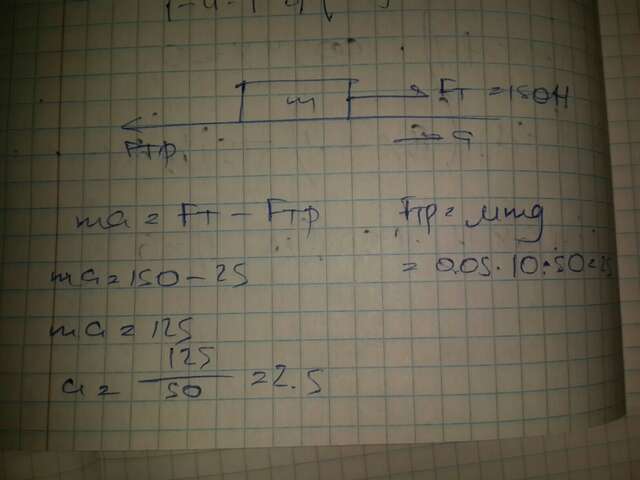 m Fт = 150Н
Fтр. a
ma = Fт - Fтр Fтр = μmg
ma = 150 - 25 = 0.05 · 10 · 50 = 25
ma = 125
a = 125 / 50 = 2.5